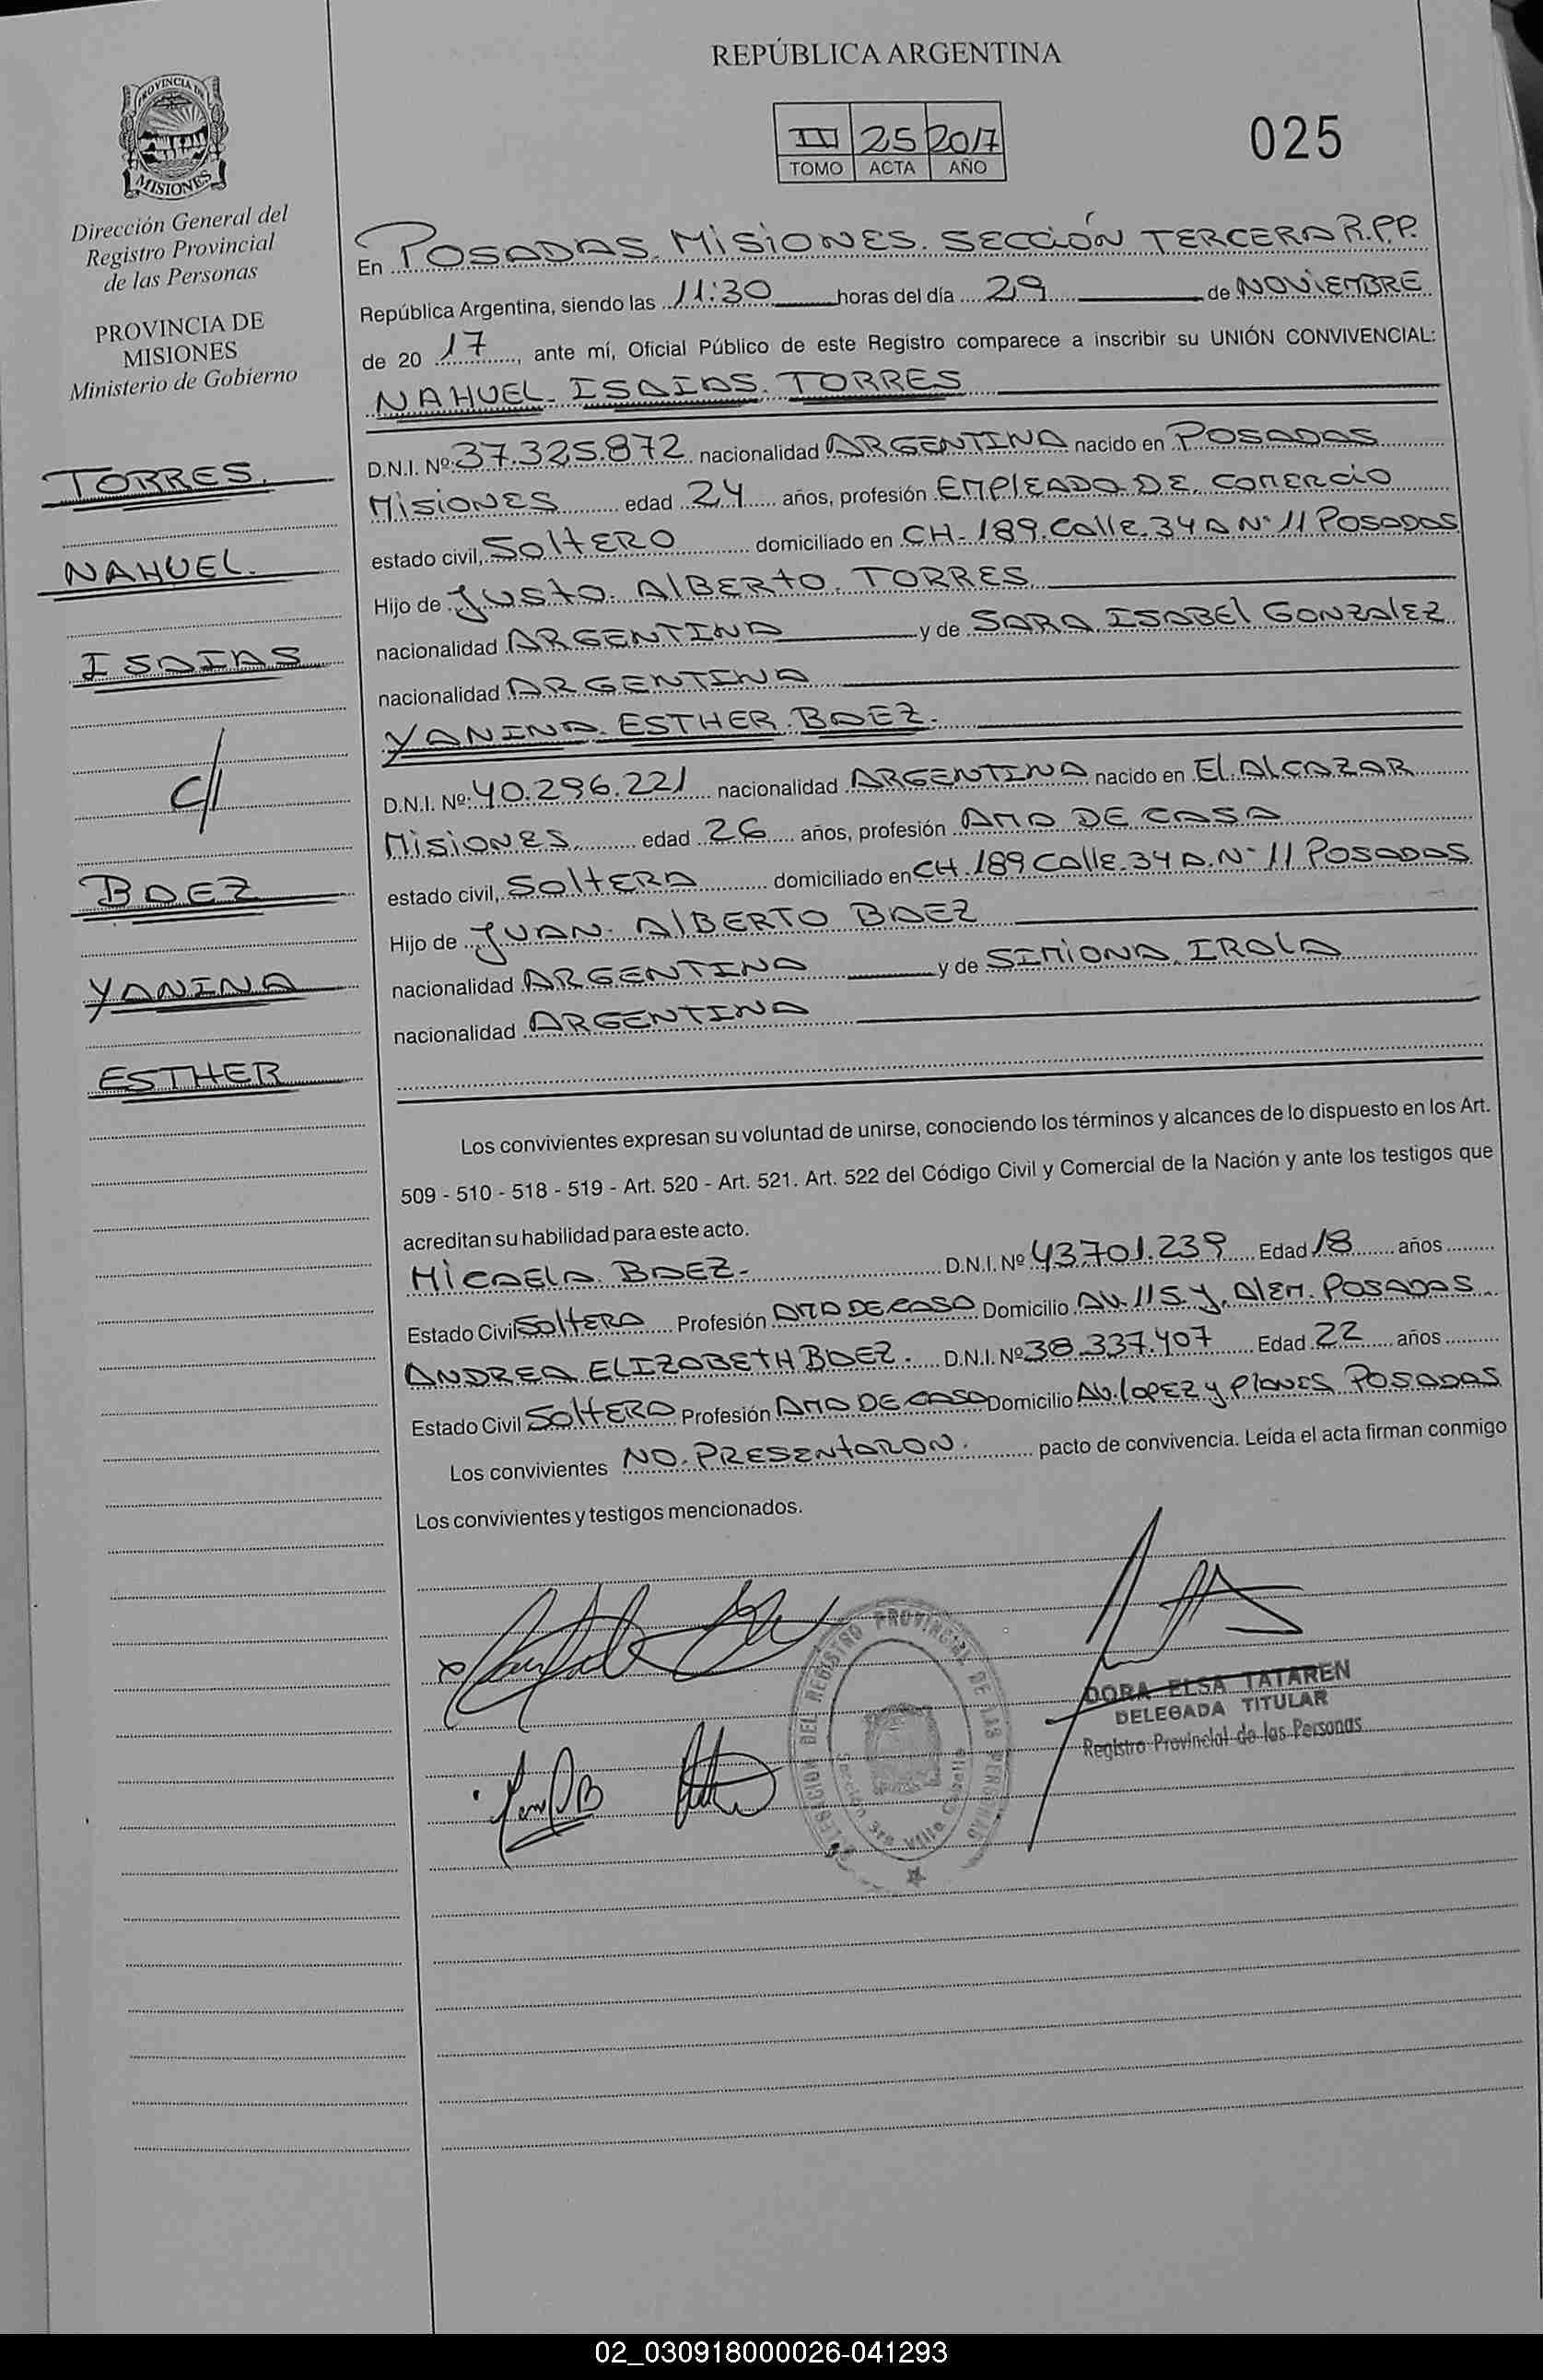 REPÚBLICA ARGENTINA
III 25 2017
TOMO ACTA AÑO
025
PROVINCIA DE
MISIONES
Dirección General del
Registro Provincial
de las Personas
PROVINCIA DE
MISIONES
Ministerio de Gobierno
TORRES.
NAHUEL.
ISAIAS
C//
BAEZ
YANINA
ESTHER
En POSADAS. MISIONES. SECCIÓN TERCERA R.P.P.
República Argentina, siendo las 11:30 horas del día 29 de NOVIEMBRE
de 20 17, ante mí, Oficial Público de este Registro comparece a inscribir su UNIÓN CONVIVENCIAL:
NAHUEL ISAIAS. TORRES
D.N.I. Nº: 37.325.872 nacionalidad ARGENTINA nacido en POSADAS
MISIONES edad 24 años, profesión EMPLEADO DE COMERCIO
estado civil, SOLTERO domiciliado en CH- 189. Calle. 34 A Nº 11 POSADAS
Hijo de JUSTO. ALBERTO. TORRES
nacionalidad ARGENTINA y de SARA. ISABEL GONZALEZ
nacionalidad ARGENTINA
YANINA. ESTHER. BAEZ.
D.N.I. Nº: 40.296.221 nacionalidad ARGENTINA nacido en EL ALCAZAR
MISIONES. edad 26 años, profesión AMA DE CASA
estado civil, SOLTERA domiciliado en CH. 189 Calle. 34 A. Nº 11 POSADAS
Hijo de JUAN. ALBERTO BAEZ
nacionalidad ARGENTINA y de SIMIONA. IROLA
nacionalidad ARGENTINA
Los convivientes expresan su voluntad de unirse, conociendo los términos y alcances de lo dispuesto en los Art.
509 - 510 - 518 - 519 - Art. 520 - Art. 521. Art. 522 del Código Civil y Comercial de la Nación y ante los testigos que
acreditan su habilidad para este acto.
MICAELA BAEZ- D.N.I. Nº 43.701.239 Edad 18 años
Estado Civil SOLTERA Profesión AMA DE CASA Domicilio AV. 115 y. ALEM. POSADAS
ANDREA ELIZABETH BAEZ. D.N.I. Nº 38.337.407 Edad 22 años
Estado Civil SOLTERA Profesión AMA DE CASA Domicilio AV. LOPEZ y PLANES POSADAS
Los convivientes NO. PRESENTARON. pacto de convivencia. Leída el acta firman conmigo
Los convivientes y testigos mencionados.
DELEGACION DEL REGISTRO PROVINCIAL DE LAS PERSONAS
Sección 3ra Villa
DORA ELSA TATAREN
DELEGADA TITULAR
Registro Provincial de las Personas
02_030918000026-041293